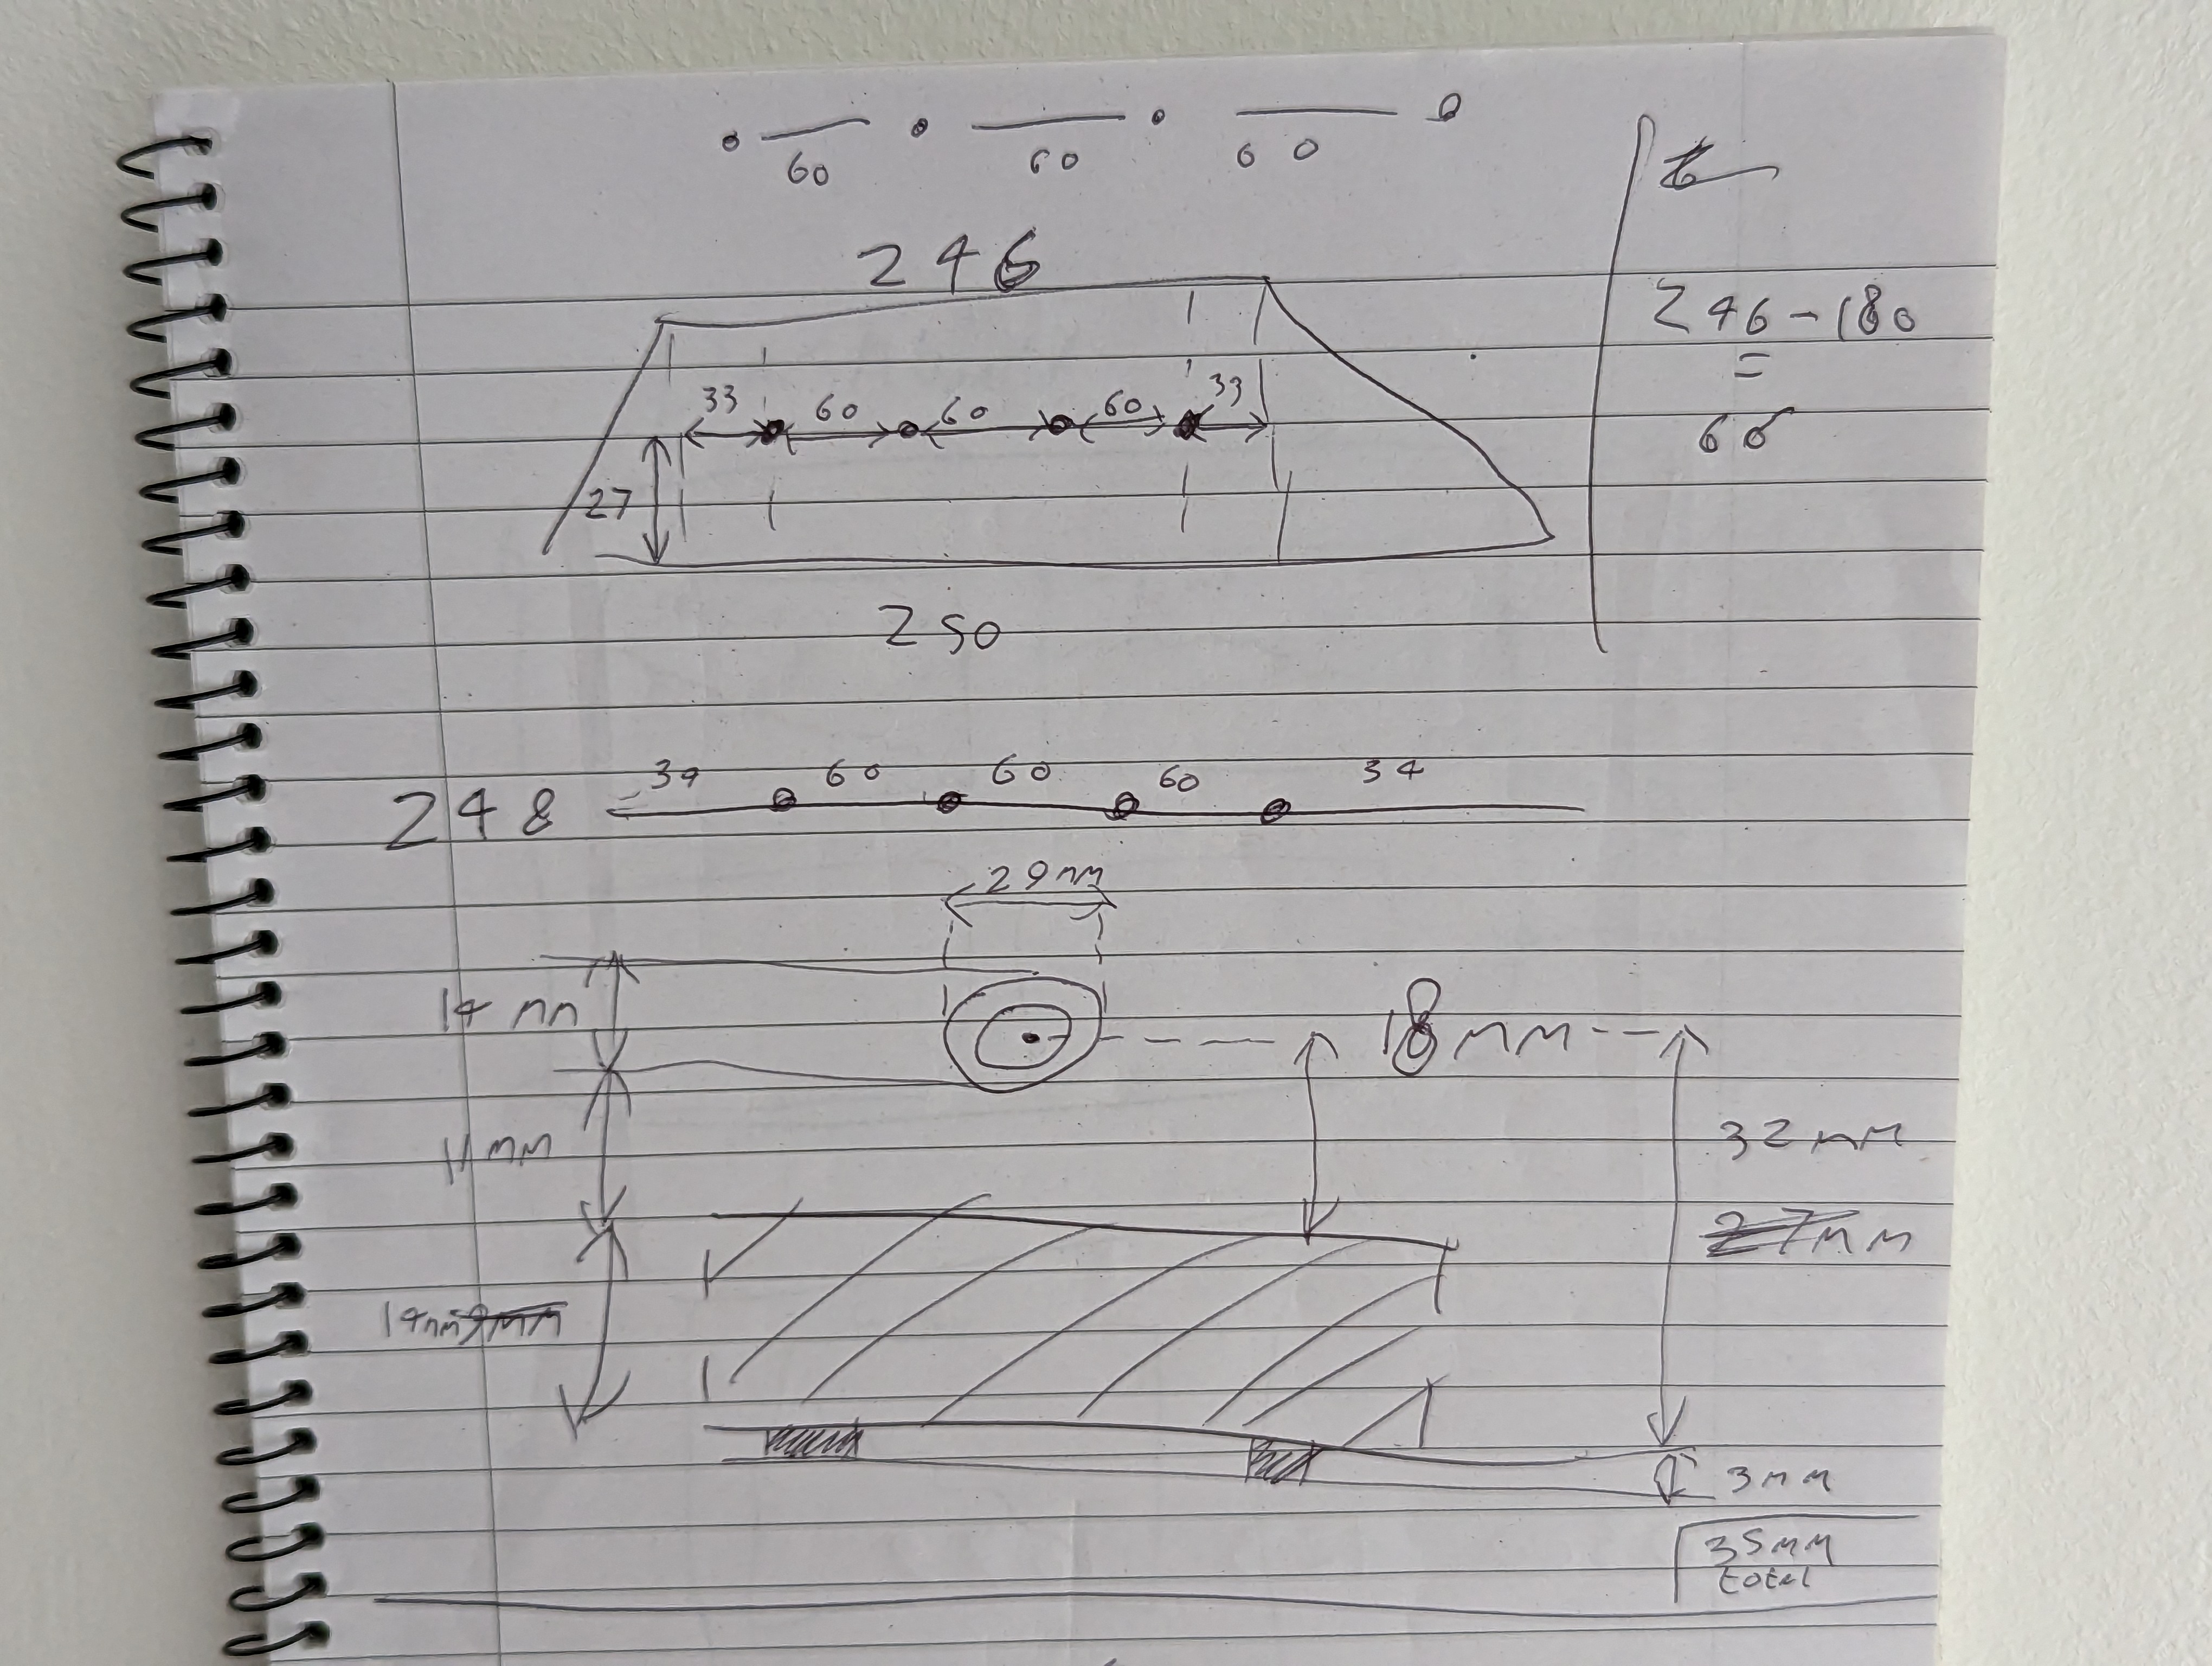 60 60 60
246
246-180
=
66
33 60 60 60 33
27
250
248 34 60 60 60 34
29mm
14mm
18mm
11mm
32mm
27mm
14mm 9mm
3mm
35mm
total